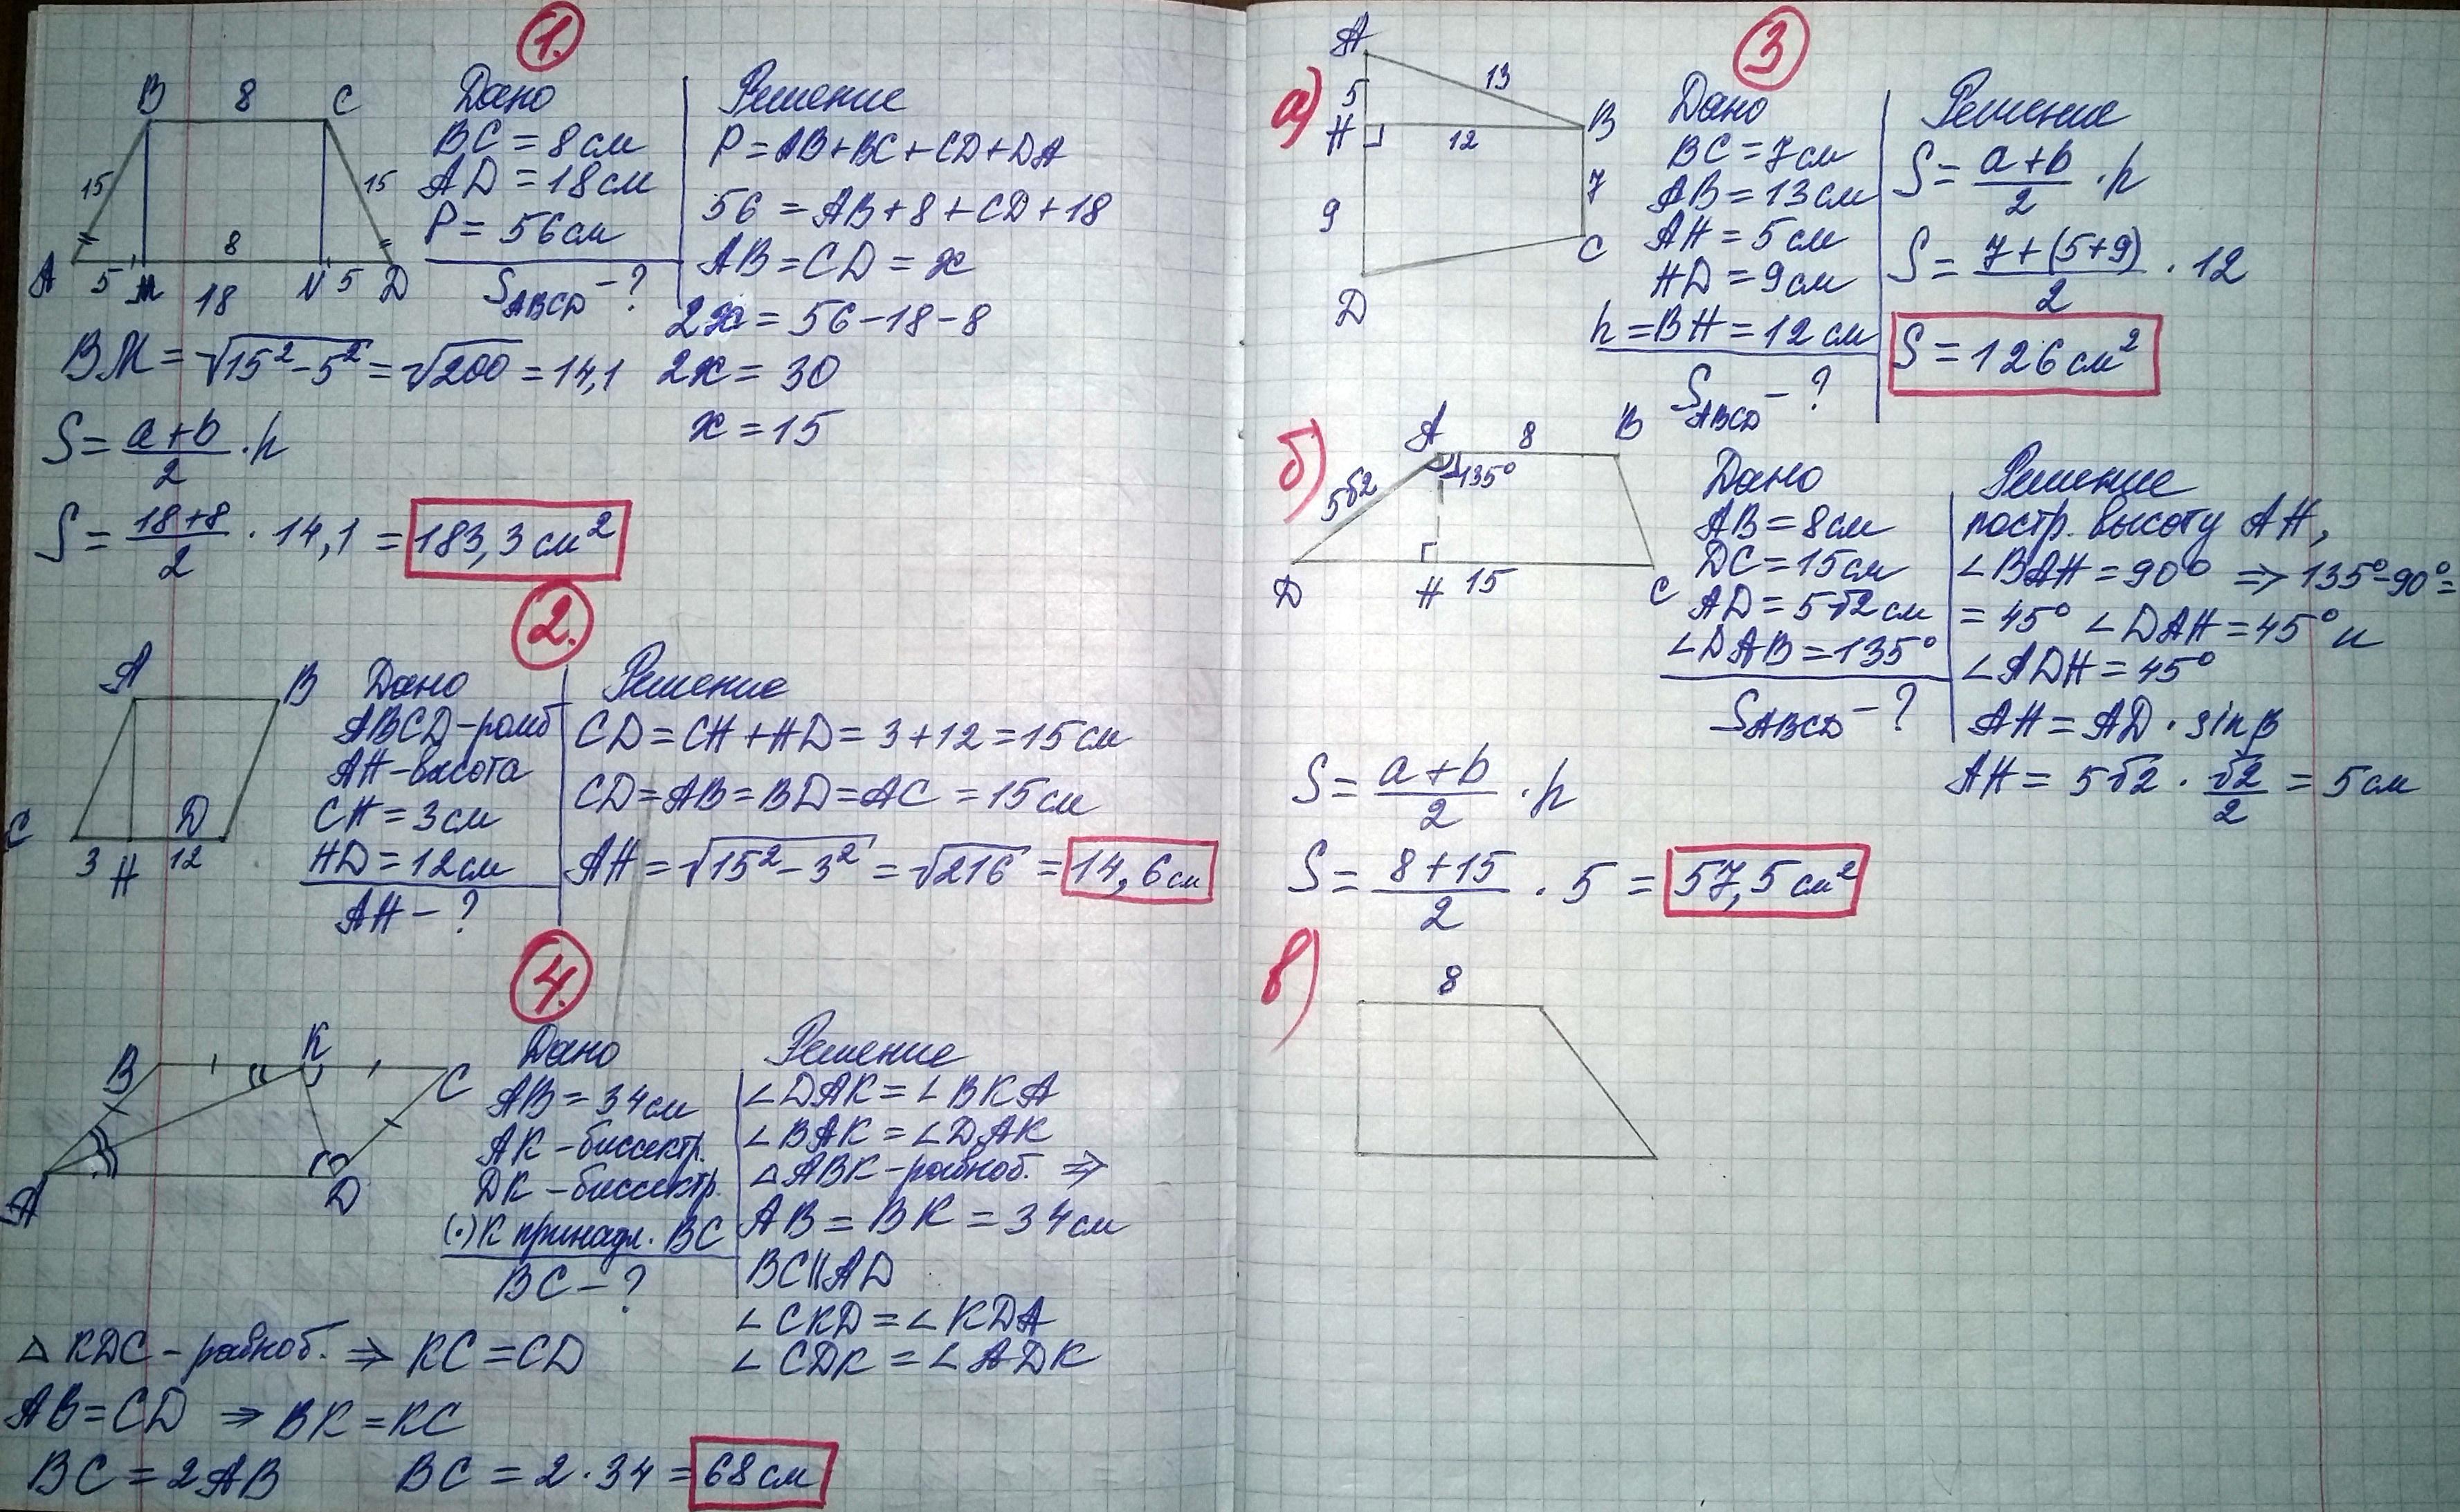 1.
B 8 C
15 15
8
A 5 M 18 N 5 D
Дано
BC = 8 см
AD = 18 см
P = 56 см
S ABCD - ?
Решение
P = AB + BC + CD + DA
56 = AB + 8 + CD + 18
AB = CD = x
2x = 56 - 18 - 8
2x = 30
x = 15
BM = √15² - 5² = √200 = 14,1
S = a + b / 2 · h
S = 18 + 8 / 2 · 14,1 = 183,3 см²
2.
A B
C D
3 H 12
Дано
ABCD - ромб
AH - высота
CH = 3 см
HD = 12 см
AH - ?
Решение
CD = CH + HD = 3 + 12 = 15 см
CD = AB = BD = AC = 15 см
AH = √15² - 3² = √216 = 14,6 см
4.
B K C
A D
Дано
AB = 34 см
AK - биссектр.
DK - биссектр.
(·) K принадл. BC
BC - ?
Решение
∠DAK = ∠BKA
∠BAK = ∠DAK
△ABK - равноб. ⇒
AB = BK = 34 см
BC || AD
∠CKD = ∠KDA
∠CDK = ∠ADK
△KDC - равноб. ⇒ KC = CD
AB = CD ⇒ BK = KC
BC = 2AB BC = 2 · 34 = 68 см
3
а)
A
5 13
H 12 B
9 7
C
D
Дано
BC = 7 см
AB = 13 см
AH = 5 см
HD = 9 см
h = BH = 12 см
S ABCD - ?
Решение
S = a + b / 2 · h
S = 7 + (5 + 9) / 2 · 12
S = 126 см²
б)
A 8 B
5√2 135°
D H 15 C
Дано
AB = 8 см
DC = 15 см
AD = 5√2 см
∠DAB = 135°
S ABCD - ?
Решение
постр. высоту AH,
∠BAH = 90° ⇒ 135° - 90° =
= 45° ∠DAH = 45° и
∠ADH = 45°
AH = AD · sin β
AH = 5√2 · √2 / 2 = 5 см
S = a + b / 2 · h
S = 8 + 15 / 2 · 5 = 57,5 см²
в)
8